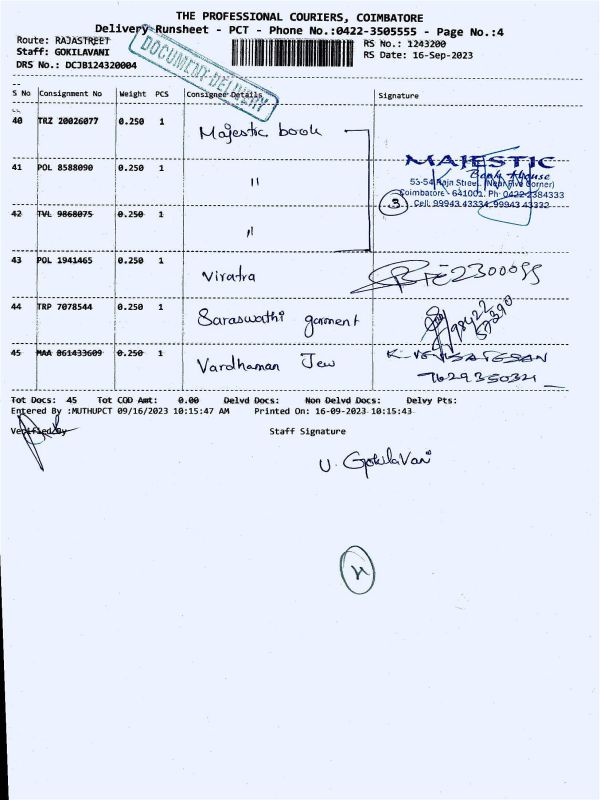 THE PROFESSIONAL COURIERS, COIMBATORE
Delivery Runsheet - PCT - Phone No.:0422-3505555 - Page No.:4
Route: RAJASTREET
RS No.: 1243200
Staff: GOKILAVANI
RS Date: 16-Sep-2023
DRS No.: DCJB124320004
DOCUMENT DELIVERY
S No Consignment No Weight PCS Consignee Details Signature
40 TRZ 20026077 0.250 1 Majestic book
41 POL 8588090 0.250 1 "
MAJESTIC
Book House
53-54 Raja Street, (Near Five Corner)
Coimbatore - 641001. Ph: 0422-2384333
Cell: 99943 43334, 99943 43332
3
42 TVL 9868075 0.250 1 "
43 POL 1941465 0.250 1 Viratra
44 TRP 7078544 0.250 1 Saraswathi garment
45 MAA 861433609 0.250 1 Vardhaman Jew K. VENKATESAN
7629350321
Tot Docs: 45 Tot COD Amt: 0.00 Delvd Docs: Non Delvd Docs: Delvy Pts:
Entered By :MUTHUPCT 09/16/2023 10:15:47 AM Printed On: 16-09-2023 10:15:43
Verified By Staff Signature
U. Gokilavani